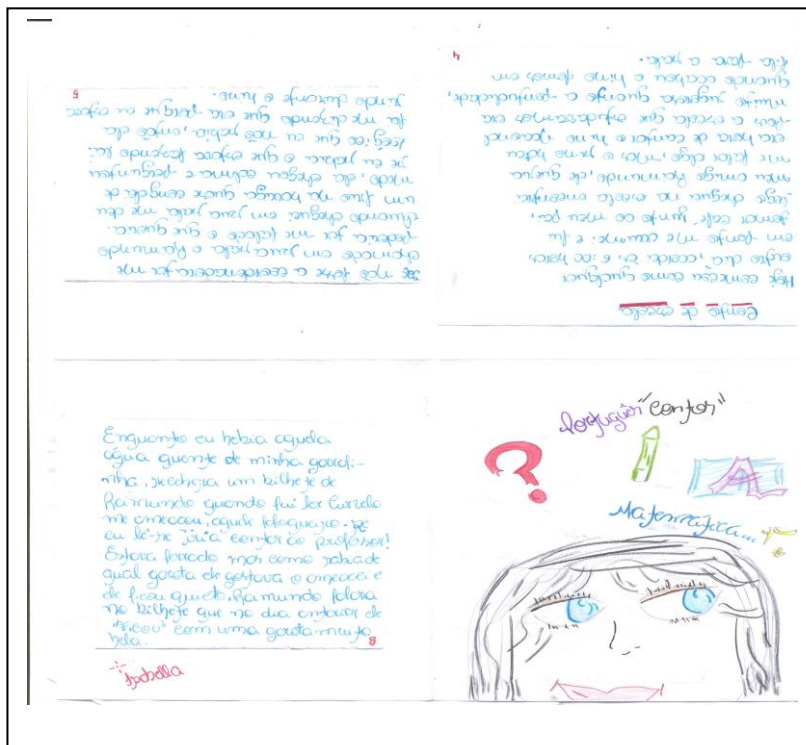 Conto de escola
Hoje começou como qualquer
outro dia, acordei às 6:00 horas
em ponto me arrumei e fui
tomar café junto ao meu pai,
logo cheguei na escola encontrei
meu amigo Raimundo, ele queria
me falar algo, mas o sino bateu
era hora de cantar o hino nacional
pois a escola que estudávamos era
muito rigorosa quanto a pontualidade,
quando acabou o hino fomos em
fila para a sala.
4
Se não fosse a coordenadora ter me
chamado em sua sala o Raimundo
poderia ter me falado o que queria.
Quando cheguei em sua sala me deu
um frio na barriga quase congelei de
medo, ela chegou calma e perguntou
se eu sabia o que estava fazendo lá;
lógico que eu não sabia, então ela
foi me dizendo que era porque eu estava
durante o hino.
5
Enquanto eu bebia aquela
água quente de minha garrafi-
nha, recebera um bilhete de
Raimundo quando fui ler Curvelo
me ameaçou, aquele fofoqueiro. Se
eu lê-se iria contar ao professor!
Estava ferrado mas como sabia de
qual garota ele gostava o ameacei e
ele ficou quieto. Raimundo falara
no bilhete que no dia anterior ele
"ficou" com uma garota muito
bela.
8
Isabella
Português "contos"
?
Matemática...